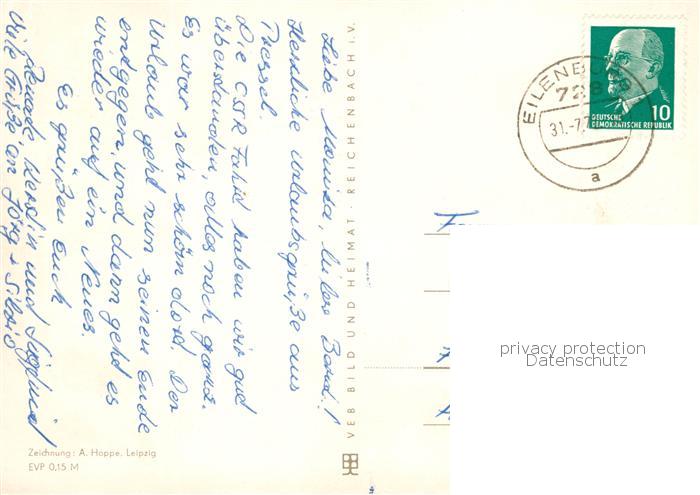 Liebe Monika, lieber Bernd!
Herzliche Urlaubsgrüße aus
Pressel.
Die CSSR Fahrt haben wir gut
überstanden, alles noch ganz.
Es war sehr schön dort. Der
Urlaub geht nun seinen Ende
entgegen, und dann geht es
wieder auf ein Neues.
Es grüßen Euch
Renate, Kerstin und Siegfried
Viele Grüße an Jörg + Silvio
VEB BILD UND HEIMAT · REICHENBACH i. V.
Zeichnung: A. Hoppe, Leipzig
EVP 0,15 M
EILENBURG
728
31.-7.7
a
10
DEUTSCHE
DEMOKRATISCHE REPUBLIK
privacy protection
Datenschutz